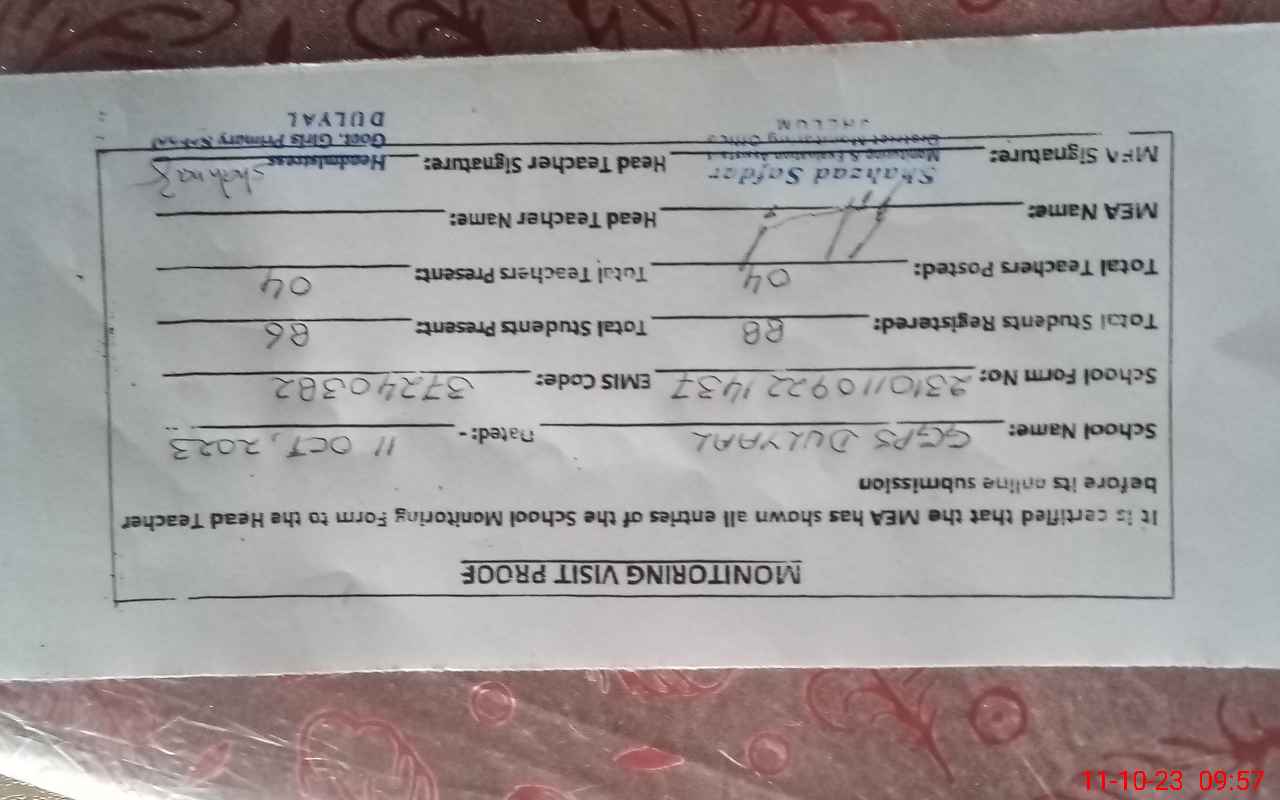 MONITORING VISIT PROOF
It is certified that the MEA has shown all entries of the School Monitoring Form to the Head Teacher
before its online submission
School Name: GGPS DULYAAL Dated:- 11 OCT, 2023
School Form No: 2310110922 1437 EMIS Code: 37240382
Total Students Registered: 88 Total Students Present: 86
Total Teachers Posted: 04 Total Teachers Present: 04
MEA Name: Head Teacher Name:
MEA Signature: Head Teacher Signature: Shahnaz
Shahzad Safdar
Monitoring & Evaluation Assistant
District Monitoring Office
JHELUM
Headmistress
Govt. Girls Primary School
DULYAL
11-10-23 09:57